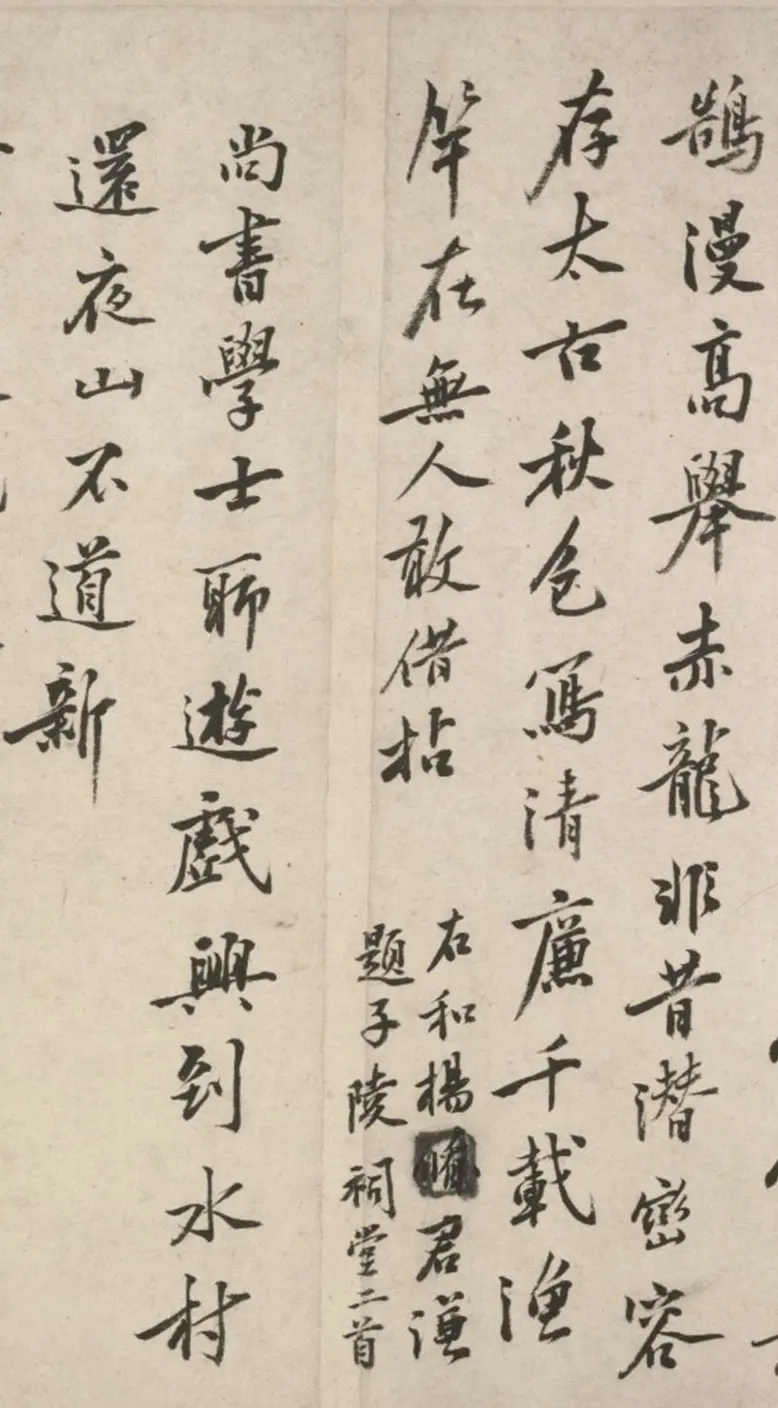 鵠漫高舉赤龍非昔潛巒容
存太古秋色寫清廉千載漁
竿在無人敢借拈
右和楊君謙
題子陵祠堂二首
尚書學士聊遊戲興到水村
還夜山不道新